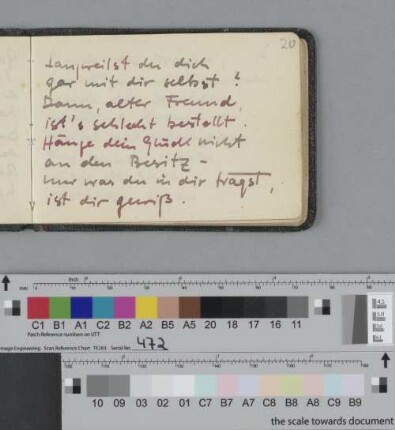 20
Langweilst du dich
gar mit dir selbst?
Dann, alter Freund,
ist's schlecht bestellt.
Hänge dein Glück nicht
an den Besitz –
nur was du in dir trägst,
ist dir gewiß.
inch
C1 B1 A1 C2 B2 A2 B5 A5 20 18 17 16 11
Patch Reference numbers on UTT
Image Engineering Scan Reference Chart TE263 Serial No. 472
10 09 03 02 01 C7 B7 A7 C8 B8 A8 C9 B9
the scale towards document